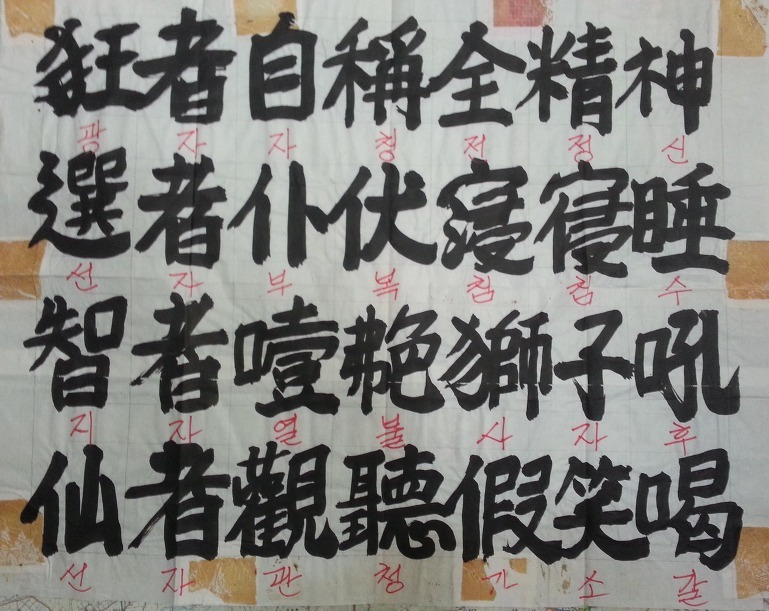 狂者自稱全精神
광 자 자 칭 전 정 신
選者仆伏寢寢睡
선 자 부 복 침 침 수
智者噎艴獅子吼
지 자 열 불 사 자 후
仙者觀聽假笑喝
선 자 관 청 가 소 갈